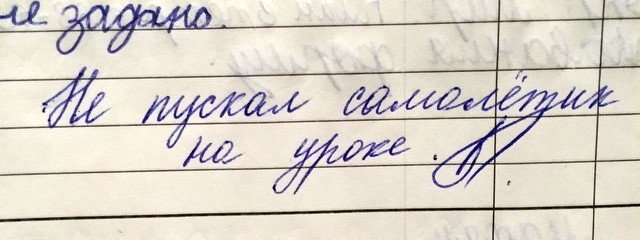 не задано.
Не пускал самолётик
на уроке.